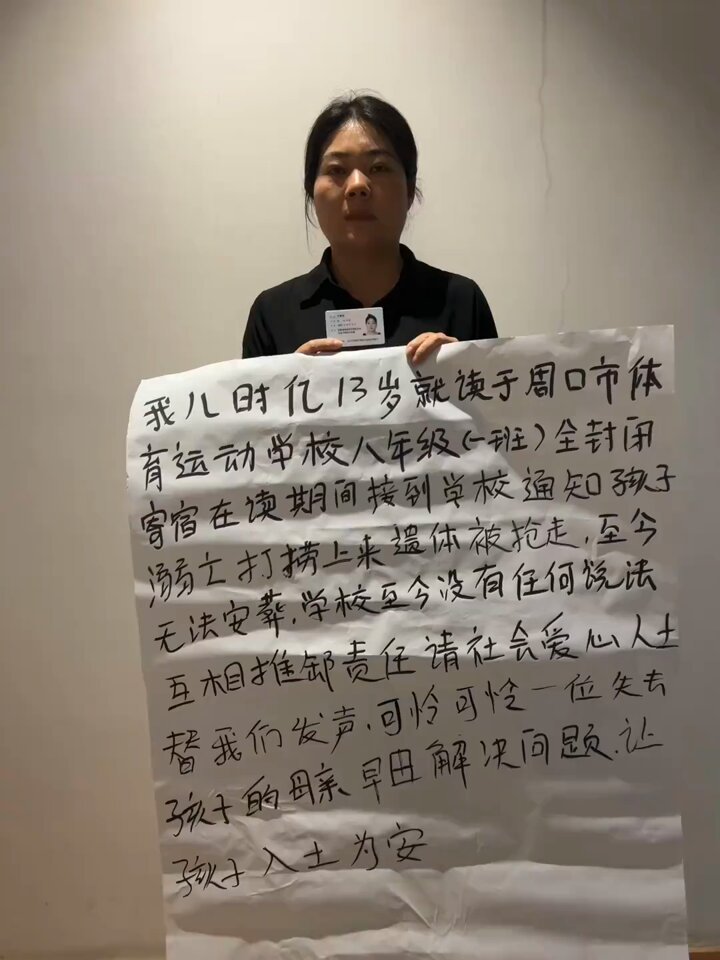 我儿时亿13岁就读于周口市体
育运动学校八年级(一班)全封闭
寄宿在读期间接到学校通知孩子
溺亡打捞上来遗体被抢走,至今
无法安葬,学校至今没有任何说法
互相推卸责任请社会爱心人士
替我们发声,可怜可怜一位失去
孩子的母亲早日解决问题,让
孩子入土为安